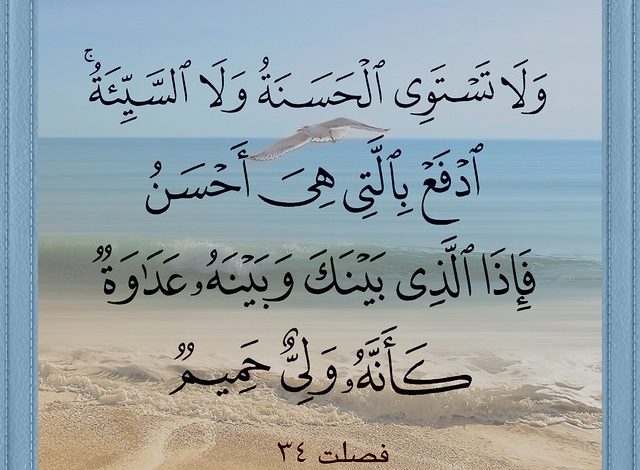 وَلَا تَسْتَوِى ٱلْحَسَنَةُ وَلَا ٱلسَّيِّئَةُ ۚ
ٱدْفَعْ بِٱلَّتِى هِىَ أَحْسَنُ
فَإِذَا ٱلَّذِى بَيْنَكَ وَبَيْنَهُۥ عَدَٰوَةٌ
كَأَنَّهُۥ وَلِىٌّ حَمِيمٌ
فصلت ٣٤